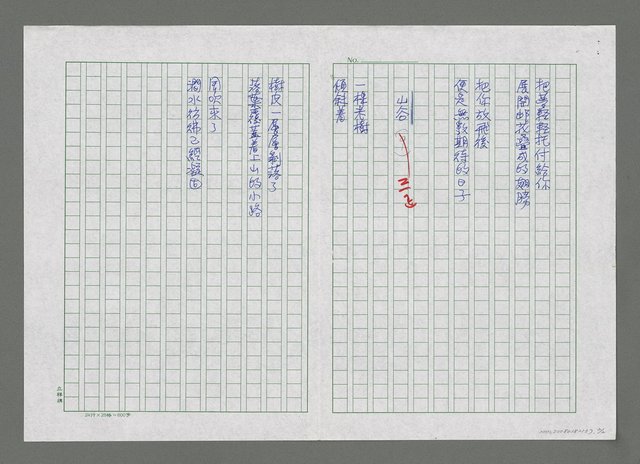 No.
把夢輕輕托付給你
展開郵花疊成的翅膀
把你放飛後
便是無數期待的日子
山谷
一棵老樹
傾斜着
樹皮一層層剝落了
落葉覆蓋着上山的小路
風吹來了
澗水彷彿已經凝固
24行×25格=600字